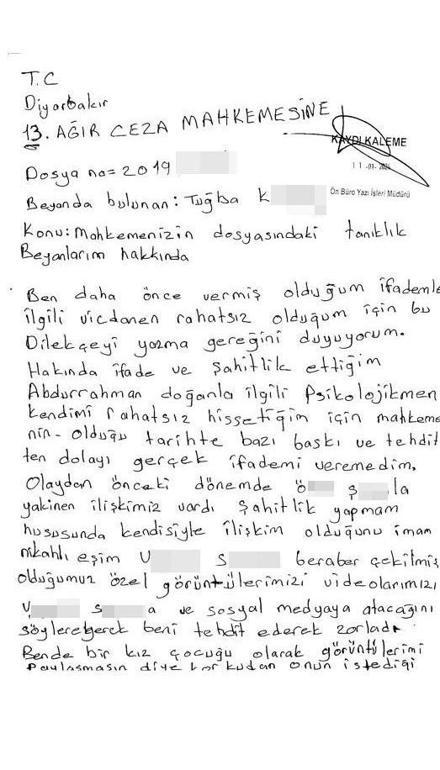 T.C
Diyarbakır
13. AĞIR CEZA MAHKEMESİNE
KAYDI KALEME
11 -01-
Ön Büro Yazı İşleri Müdürü
Dosya no= 2019
Beyanda bulunan: Tuğba K
Konu: Mahkemenizin dosyasındaki tanıklık
Beyanlarım hakkında
Ben daha önce vermiş olduğum ifademle
ilgili vicdanen rahatsız olduğum için bu
Dilekçeyi yazma gereğini duyuyorum.
Hakında ifade ve şahitlik ettiğim
Abdurrahman doğanla ilgili Psikolojikmen
kendimi rahatsız hissetiğim için mahkeme
nin- olduğu tarihte bazı baskı ve tehdit
ten dolayı gerçek ifademi veremedim,
Olaydan önceki dönemde ö Ş la
yakinen ilişkimiz vardı şahitlik yapmam
hususunda kendisiyle ilişkim olduğunu imam
nikahlı eşim U S beraber çekilmiş
olduğumuz özel görüntülerimizi videolarımızı
S a ve sosyal medyaya atacağını
beni tehdit ederek zorladı
Bende bir kız çocuğu olarak görüntülerimi
Paylaşmasın diye korkudan onun istediği